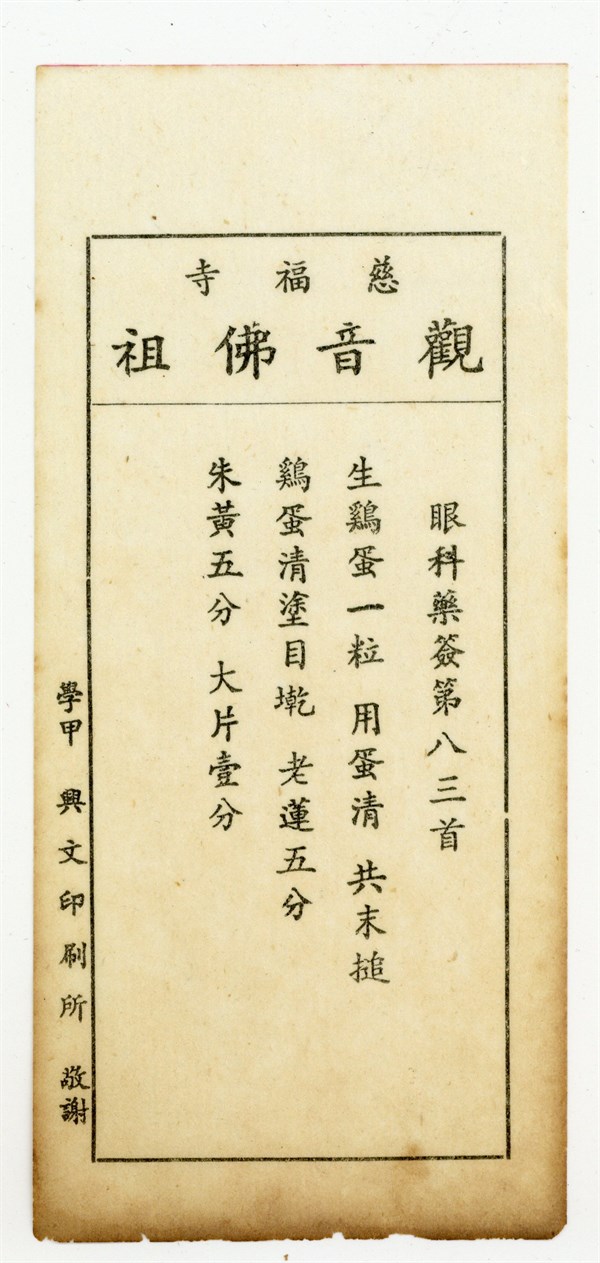 慈福寺
觀音佛祖
眼科藥簽第八三首
生鷄蛋一粒 用蛋清 共末搥
鷄蛋清塗目墘 老蓮五分
朱黃五分 大片壹分
學甲 興文印刷所 敬謝